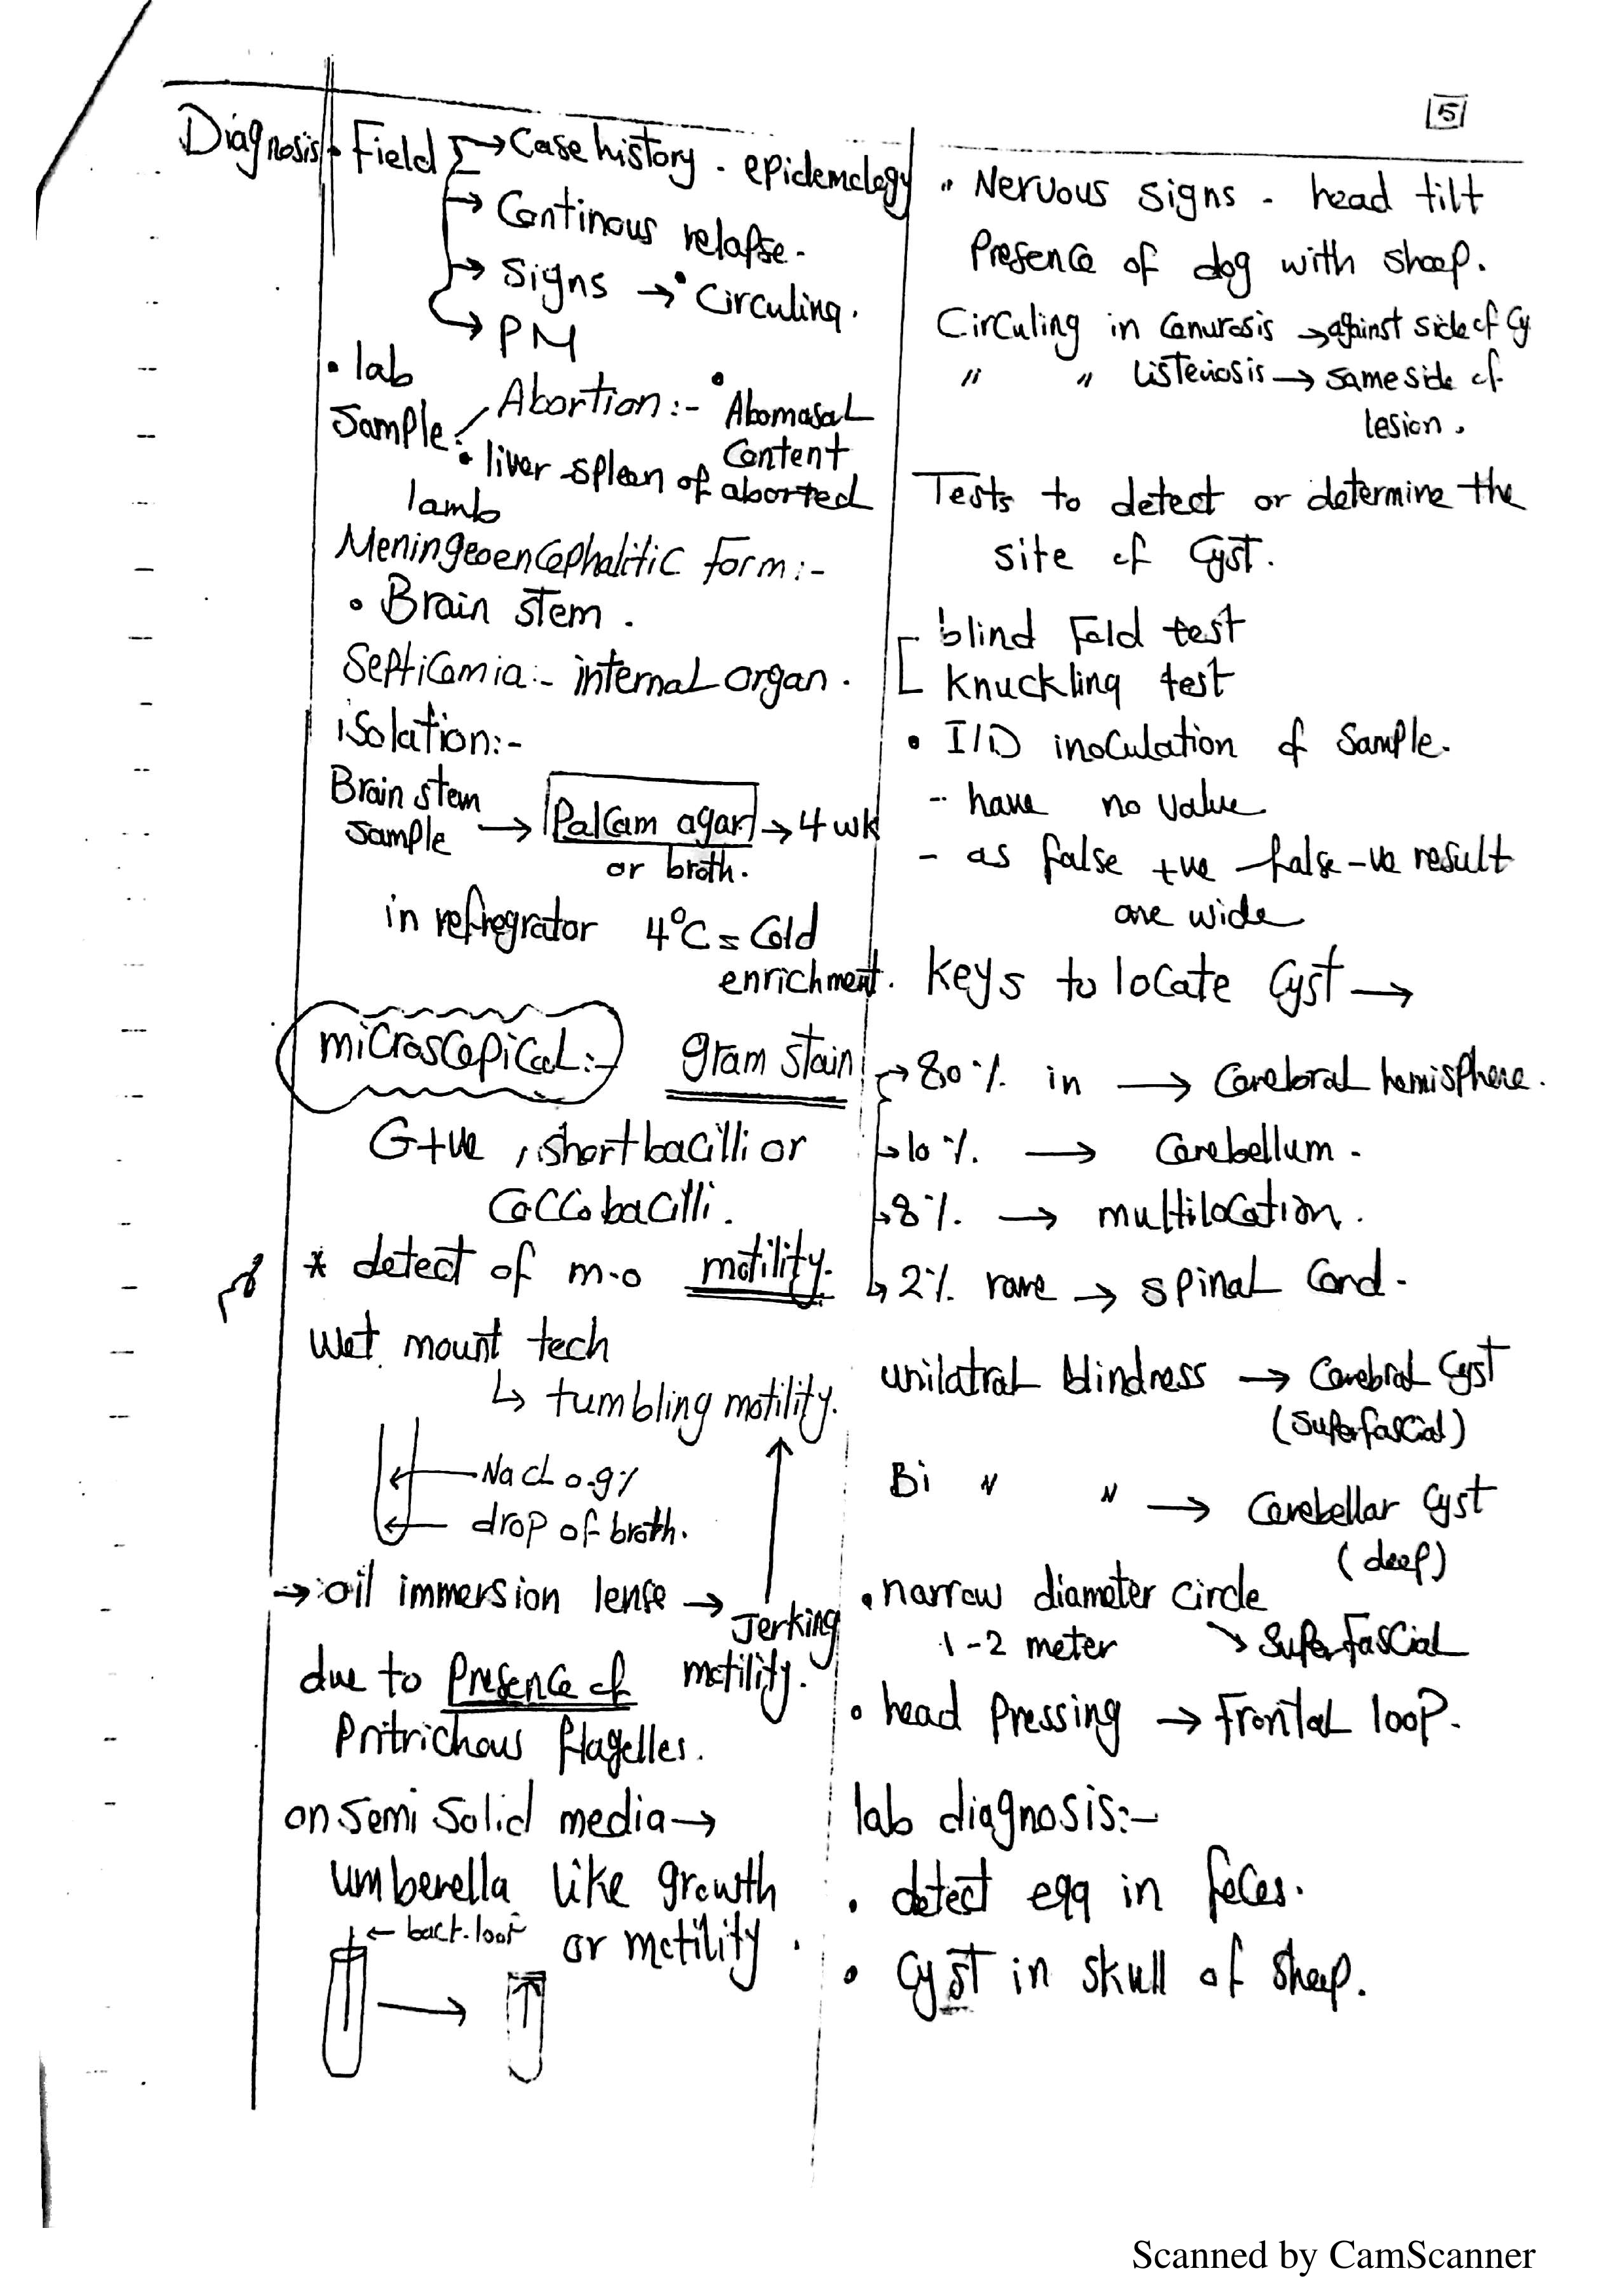 5
Diagnosis
• Field → Case history - epidemology
→ Continous relapse.
→ Signs → • Circuling.
→ PM
• lab
Sample: Abortion:- • Abomasal
Content
• liver spleen of aborted
lamb
Meningeoencephalitic form:-
• Brain stem.
Septicemia:- internal organ.
isolation:-
Brain stem
sample → Palcam agar → 4 wk
or broth.
in refregrator 4°C = Cold
enrichment.
microscopical:- gram stain
G+ve, short bacilli or
CoCCobacilli.
* detect of m.o motility.
wet mount tech
↳ tumbling motility.
← NaCl 0.9%
← drop of broth.
→ oil immersion lense → Jerking
motility.
due to Presence of
Pritrichous flagelles.
on semi solid media →
umberella like growth
or motility.
← bact. loop
" Nervous signs - head tilt
Presence of dog with sheep.
Circuling in Canurosis → against side of Cy
" " listeriosis → same side of
lesion.
Tests to detect or determine the
site of Cyst.
blind Fold test
Knuckling test
• I/D inoculation of Sample.
- have no value
- as false +ve - false -ve result
are wide
Keys to locate Cyst →
→ 80% in → Cerebral hemisphere.
↳ 10% → Cerebellum.
↳ 8% → multilocation.
↳ 2% rare → spinal Cord.
unilatral blindness → Cerebral Cyst
(Superfascial)
Bi " " → Cerebellar Cyst
(deep)
• narrow diameter circle
1-2 meter → Superfascial
• head Pressing → Frontal loop.
lab diagnosis:-
• detect egg in feces.
• Cyst in skull of sheep.
Scanned by CamScanner